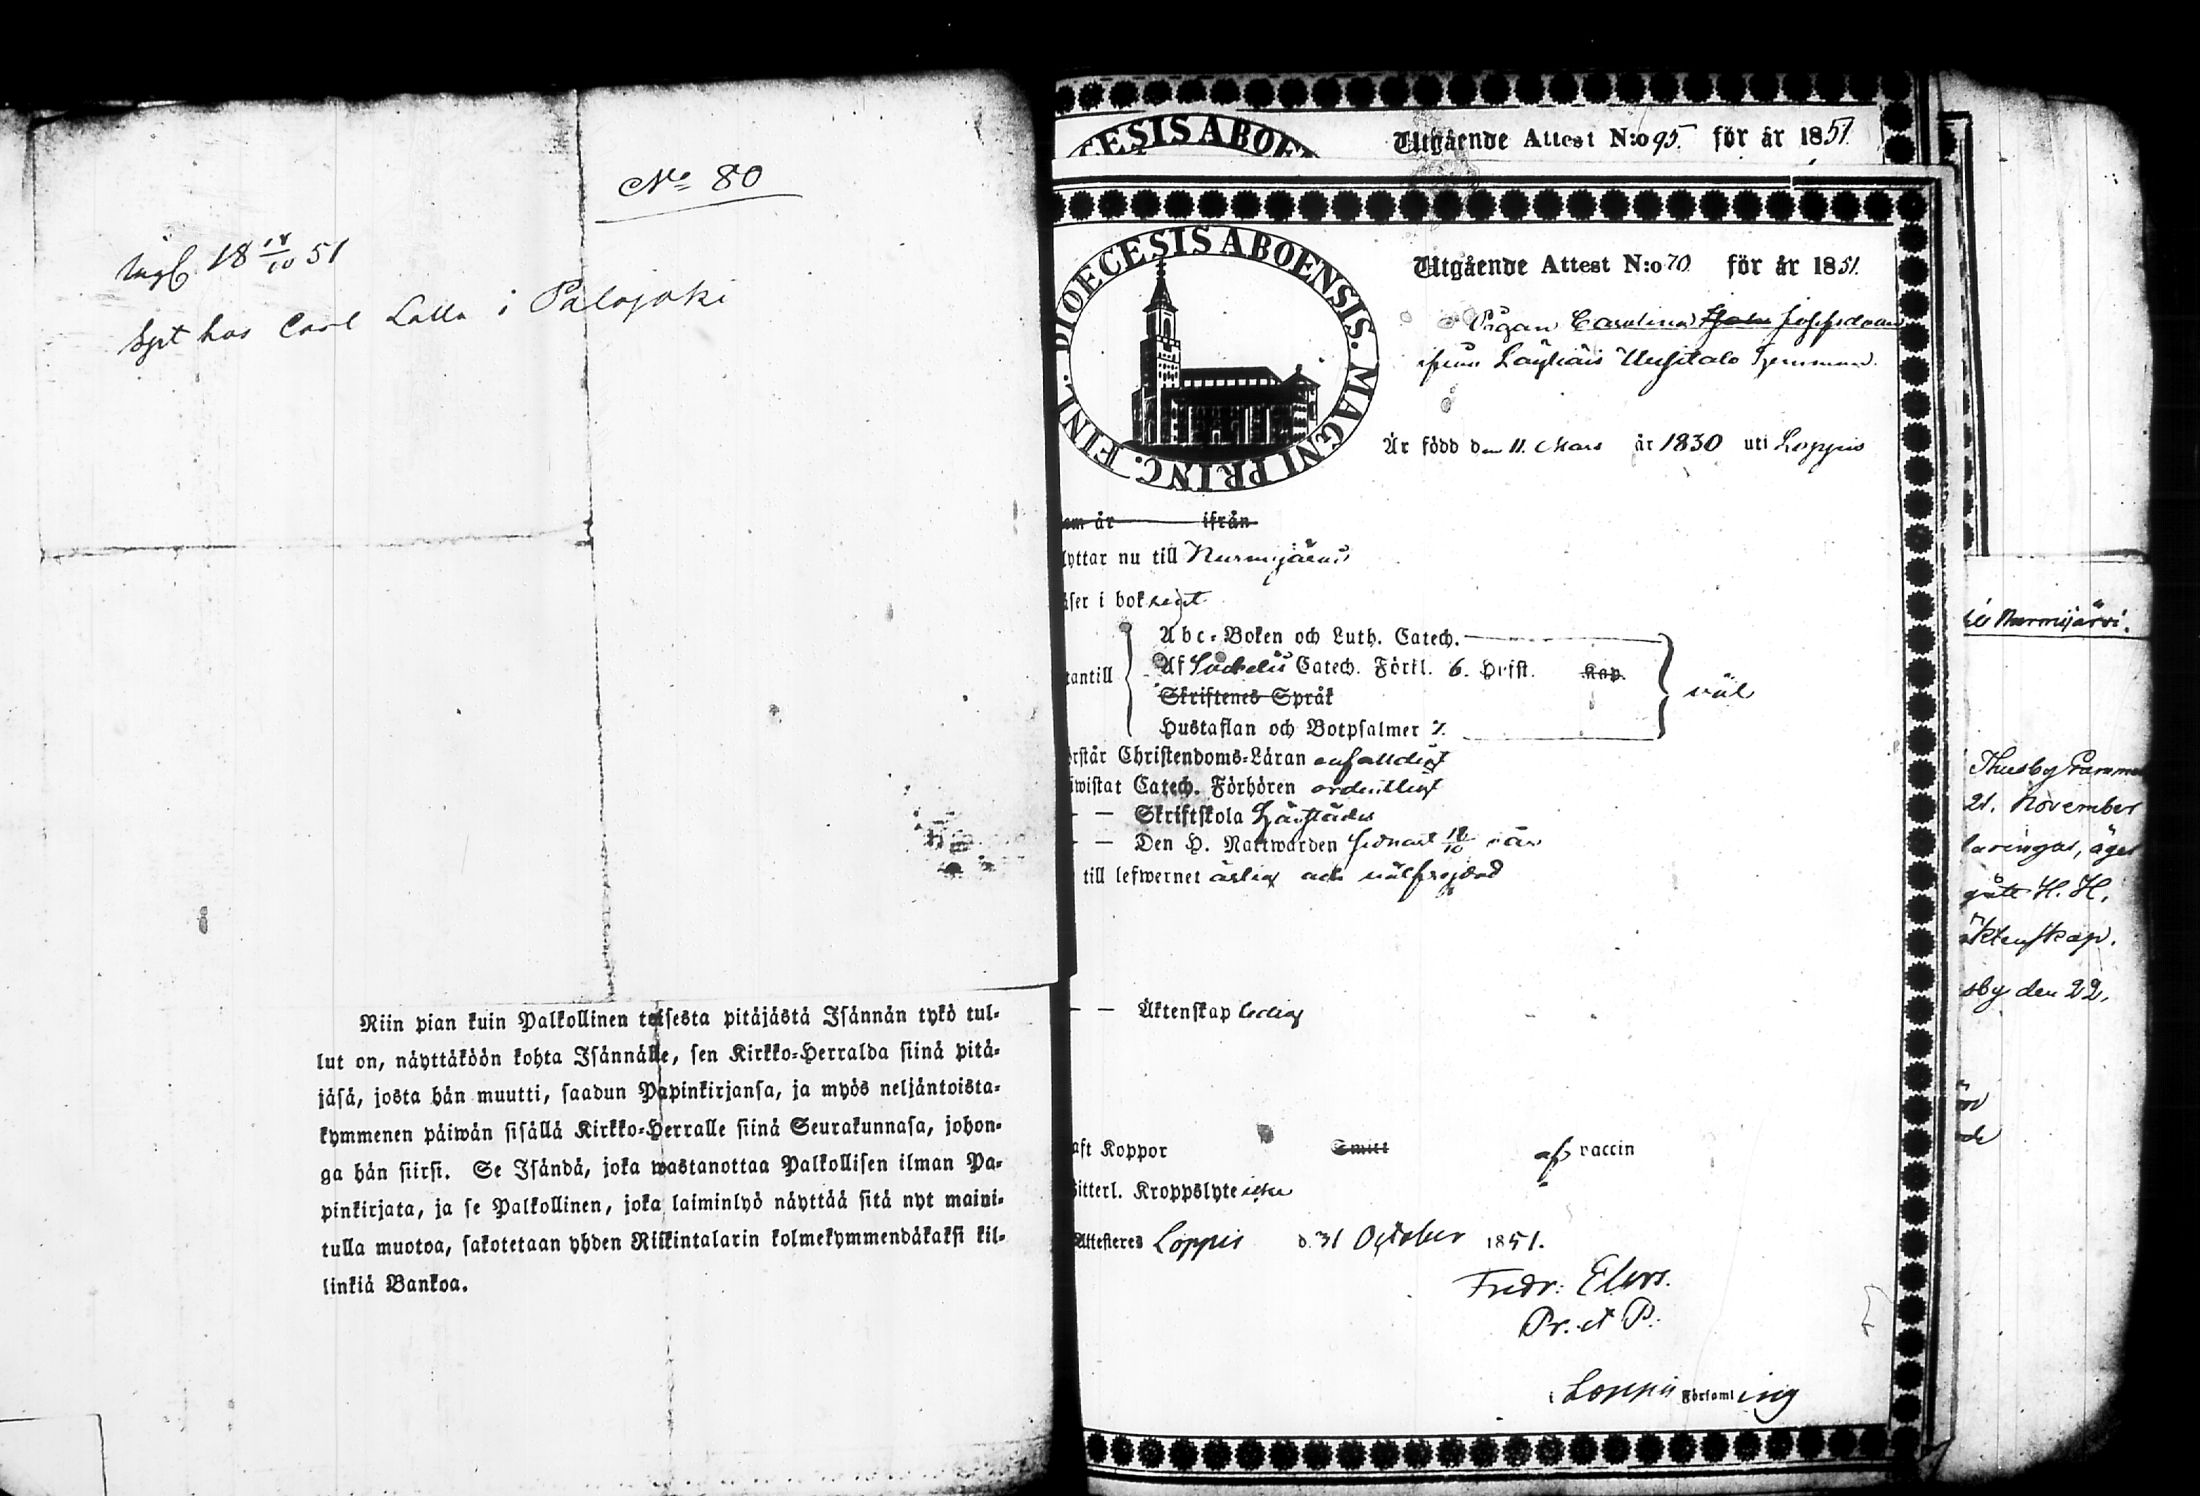 No 80
18 18/10 51
hos Carl Lalla i Palojoki
Niin pian kuin Palkollinen toisesta pitäjästä Isännän tykö tul-
lut on, näyttäköön kohta Isännälle, sen Kirkko-Herralda siinä pitä-
jäsä, josta hän muutti, saadun Papinkirjansa, ja myös neljäntoista-
kymmenen päiwän sisällä Kirkko-Herralle siinä Seurakunnasa, johon-
ga hän siirsi. Se Isändä, joka wastanottaa Palkollisen ilman Pa-
pinkirjata, ja se Palkollinen, joka laiminlyö näyttää sitä nyt maini-
tulla muotoa, sakotetaan yhden Riikintalarin kolmekymmendäkaksi kil-
linkiä Bankoa.
ŒCESIS ABOEN
Utgående Attest N:o 95. för år 1851
DIOECESIS ABOENSIS. MAGNI PRINC. FINL.
Utgående Attest N:o 70 för år 1851.
Pigan Carolina Josefsdotter
ifrån Läyliäis Uusitalo hemman.
Är född den 11. Mars år 1830 uti Loppis
om år ifrån
lyttar nu till Nurmijärvi
äser i bok rent
Abc-Boken och Luth. Catech.
tantill Af Svebelii Catech. Förkl. 6. Hrfst. Kap. väl
Skriftenes Språk
Hustaflan och Botpsalmer 7.
örstår Christendoms-Läran enfaldigt
iwistat Catech. Förhören ordentligt
— — Skriftskola härstädes
— — Den H. Nattwarden sednast 12/10 i år
till lefwernet ärlig och välfrejdad
— — Äktenskap ledig
aft Koppor Smitt af vaccin
Witterl. Kroppslyte icke
Attesteres Loppis d. 31 October 1851.
Fredr: Elers.
Pr. et P.
i Loppis Församling
Nurmijärvi.
Thusby
21. November
gått H. H.
äktenskap.
sby den 22.